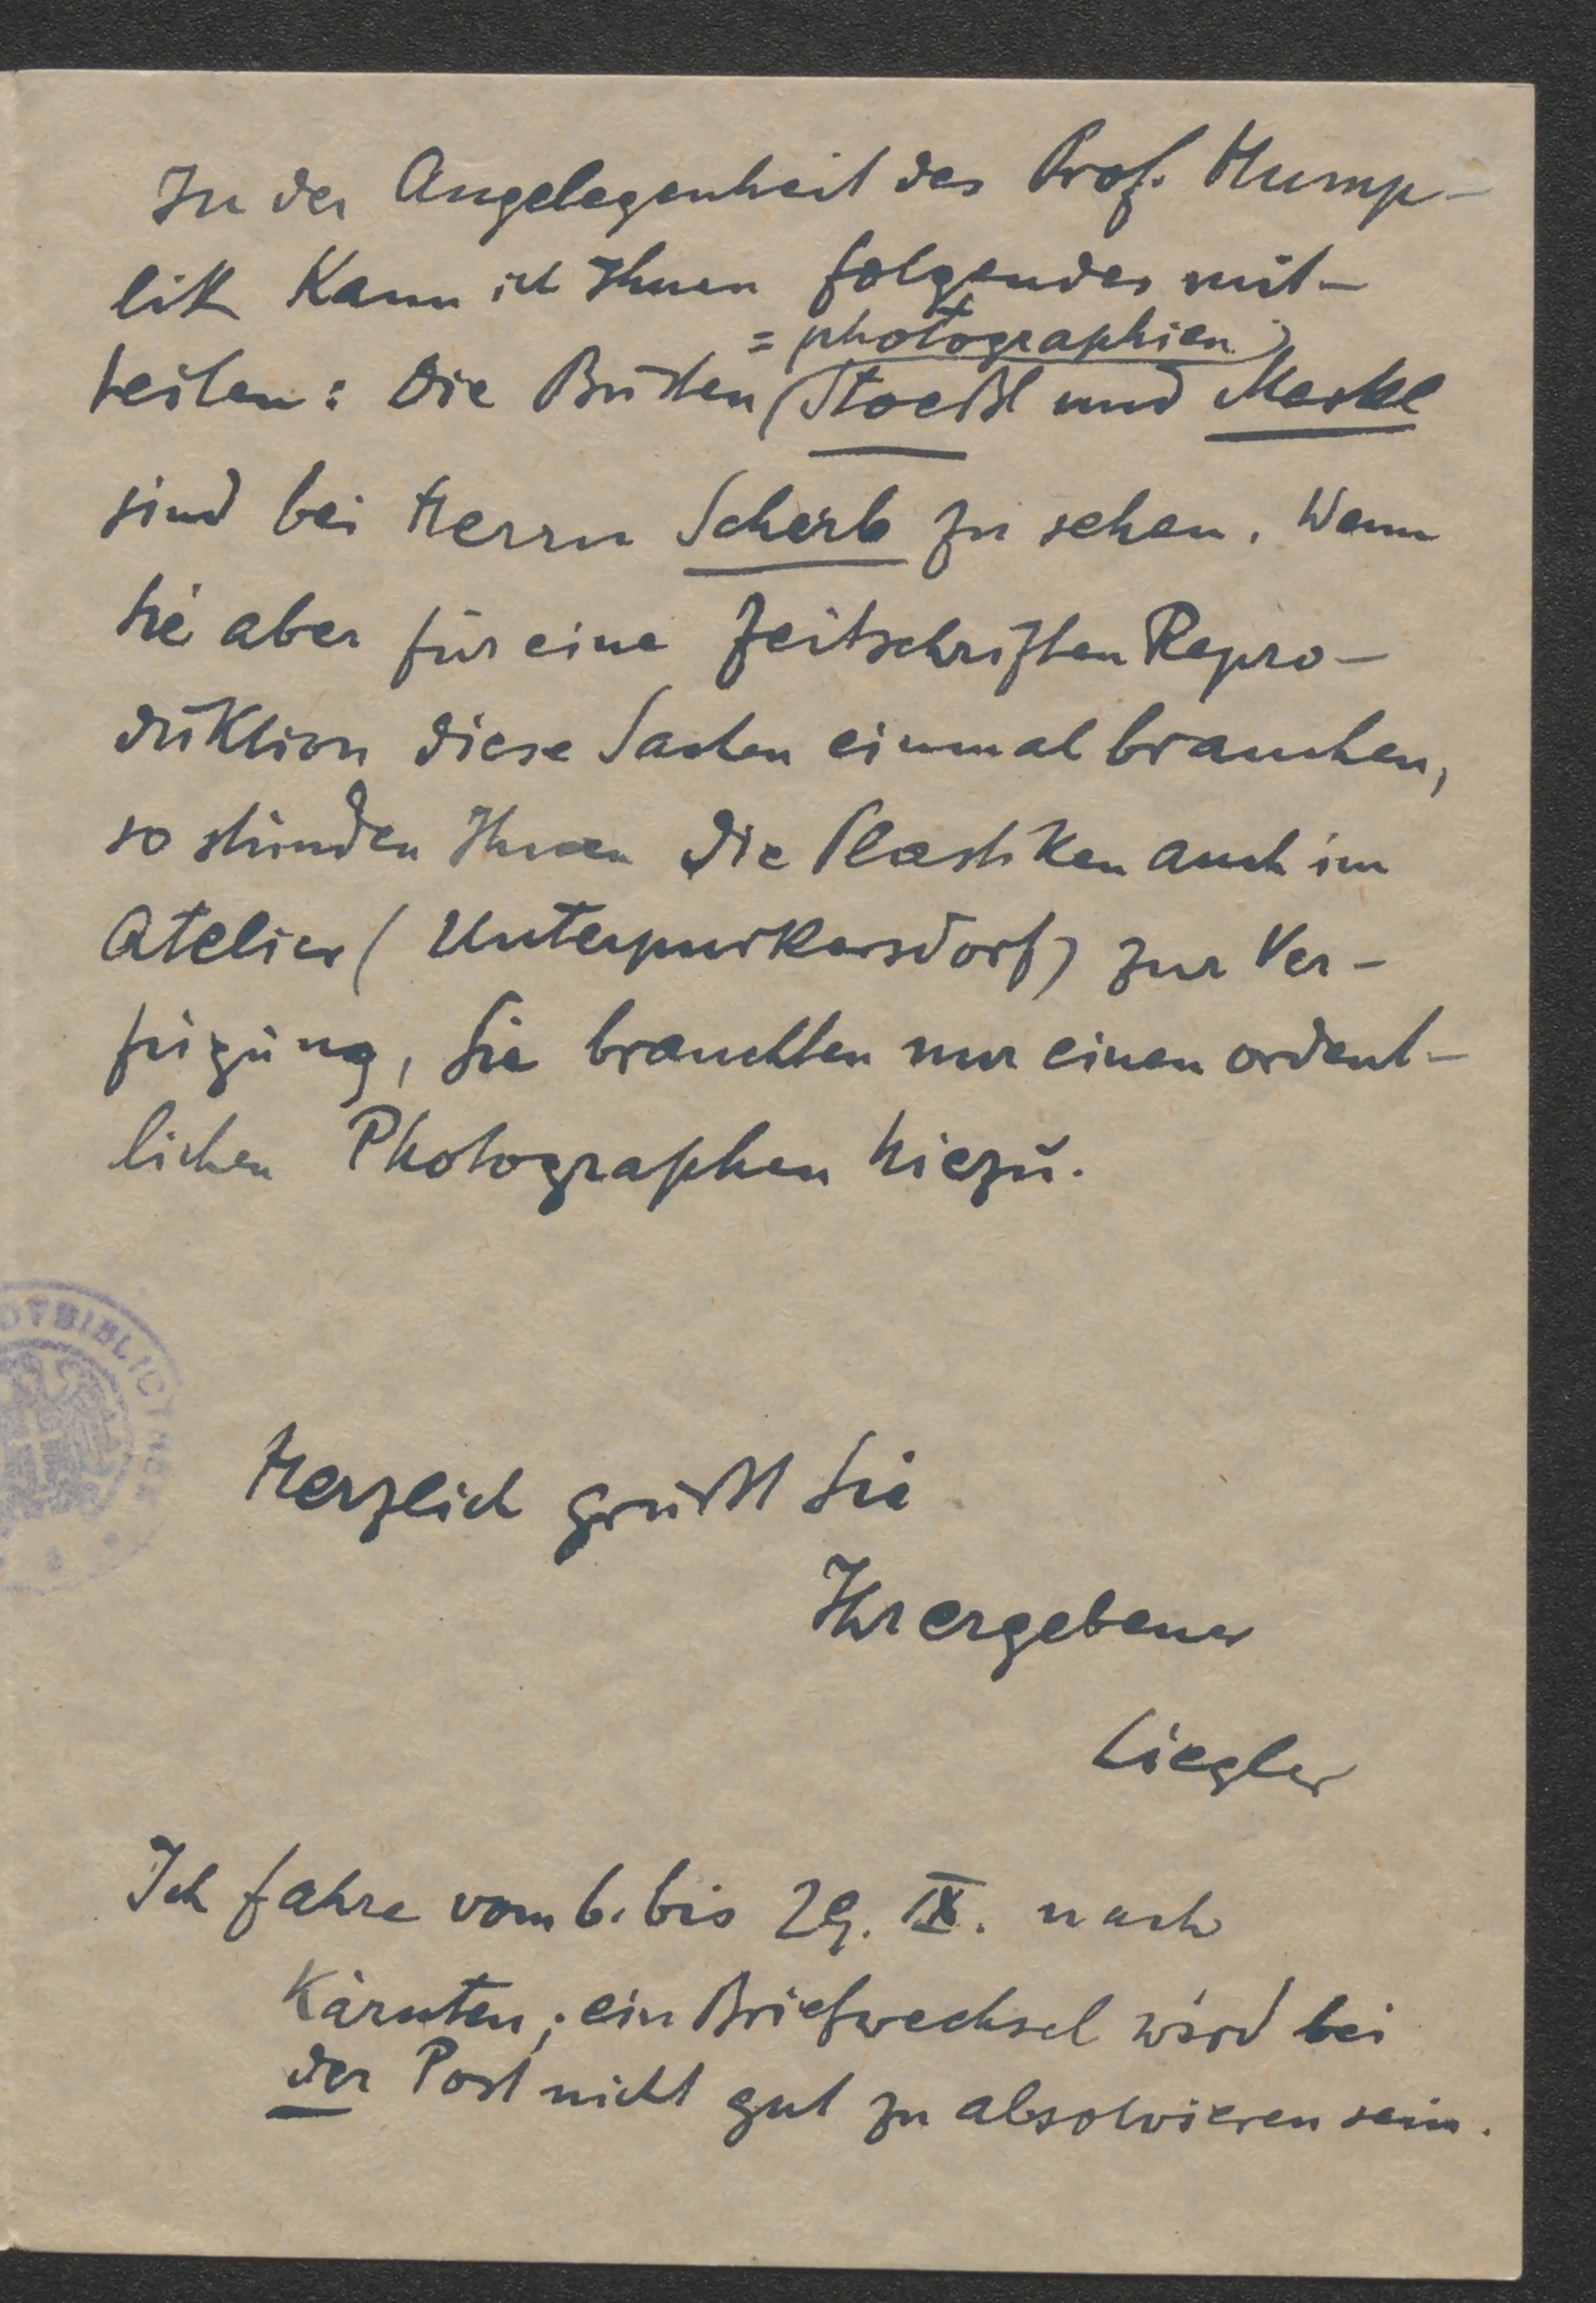 In der Angelegenheit des Prof. Hump-
lik kann ich Ihnen folgendes mit-
= photographien)
teilen: Die Büsten (Stoeßl und Merkl
sind bei Herrn Scherb zu sehen. Wenn
Sie aber für eine Zeitschriften Repro-
duktion diese Sachen einmal brauchen,
so stünden Ihnen die Plastiken auch im
Atelier (Unterpurkersdorf) zur Ver-
fügung, Sie brauchten nur einen ordent-
lichen Photographen hiezu.
OTBIBLIOTHEK
Herzlich grüßt Sie
Ihr ergebener
Liegler
Ich fahre vom 6. bis 29. IX. nach
Kärnten; ein Briefwechsel wird bei
der Post nicht gut zu absolvieren sein.